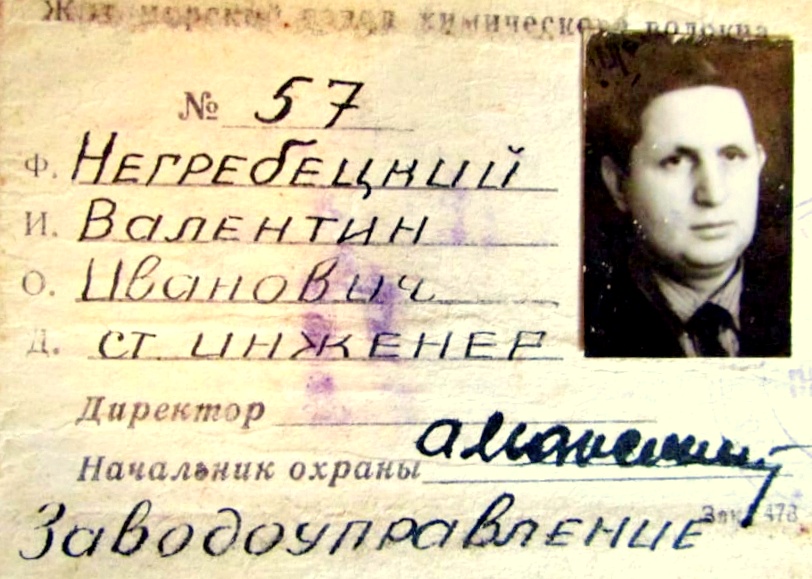 Житоморский завод химического волокна
№ 57
Ф. Негребецкий
И. Валентин
О. Иванович
Д. ст инженер
Директор
Начальник охраны
Заводоуправление
Зак. 478